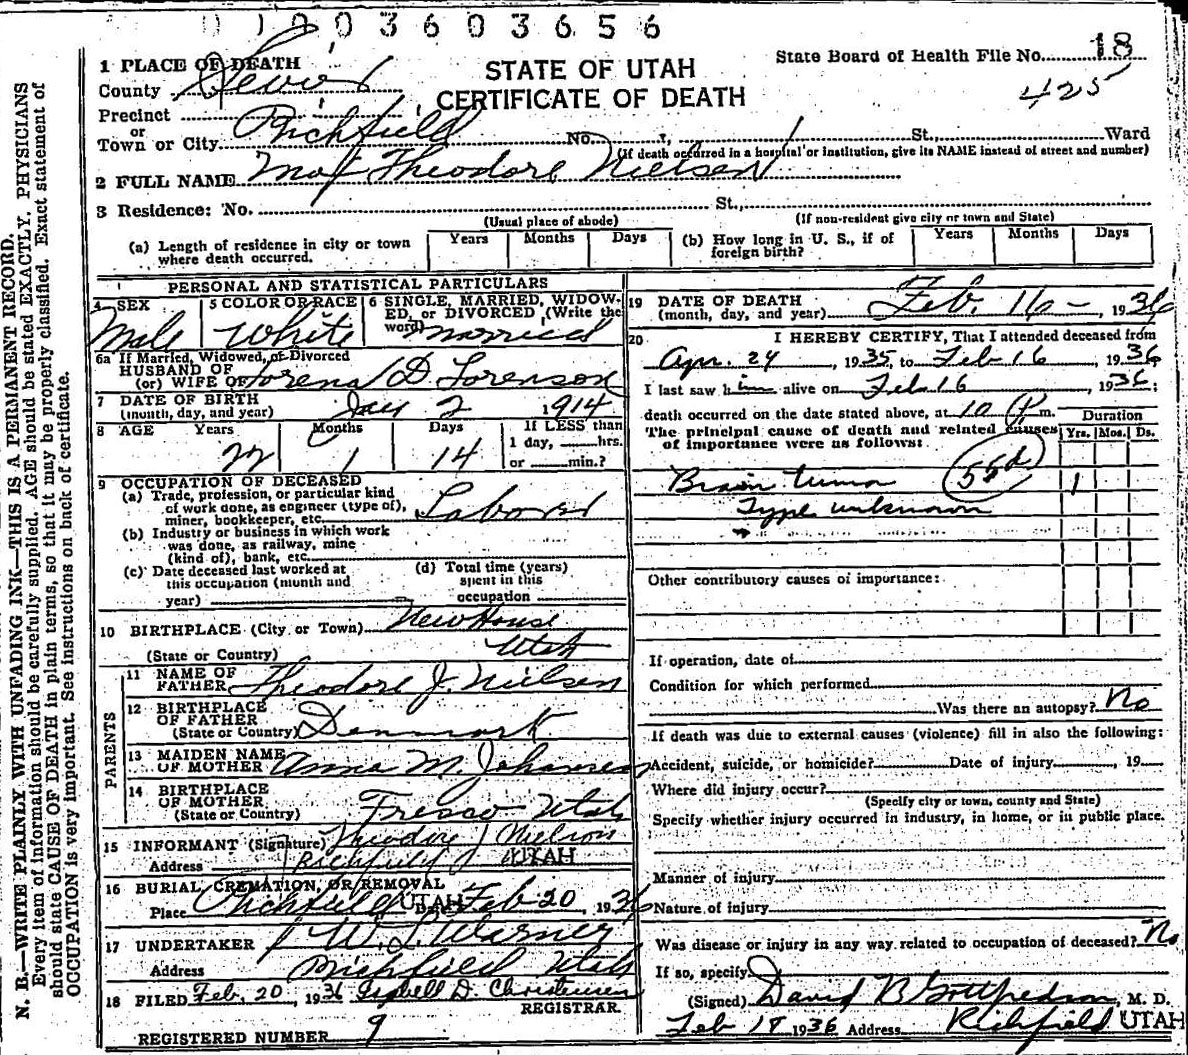 0 1 2 0 3 6 0 3 6 5 6
State Board of Health File No. 18
425
STATE OF UTAH
CERTIFICATE OF DEATH
1 PLACE OF DEATH
County Sevier
Precinct
or
Town or City Richfield No. St. Ward
(If death occurred in a hospital or institution, give its NAME instead of street and number)
2 FULL NAME Theodore Nielsen
3 Residence: No. St.,
(Usual place of abode) (If non-resident give city or town and State)
(a) Length of residence in city or town where death occurred. Years Months Days
(b) How long in U. S., if of foreign birth? Years Months Days
PERSONAL AND STATISTICAL PARTICULARS
4 SEX Male
5 COLOR OR RACE White
6 SINGLE, MARRIED, WIDOWED, or DIVORCED (Write the word) Married
6a If Married, Widowed, or Divorced
HUSBAND OF
(or) WIFE OF Lorena D. Sorenson
7 DATE OF BIRTH
(month, day, and year) Jan 2 1914
8 AGE Years 22 Months 1 Days 14
If LESS than
1 day, hrs.
or min.?
9 OCCUPATION OF DECEASED
(a) Trade, profession, or particular kind
of work done, as engineer (type of),
miner, bookkeeper, etc. Laborer
(b) Industry or business in which work
was done, as railway, mine
(kind of), bank, etc.
(c) Date deceased last worked at
this occupation (month and
year)
(d) Total time (years)
spent in this
occupation
10 BIRTHPLACE (City or Town) NewHouse
(State or Country) Utah
PARENTS
11 NAME OF
FATHER Theodore J. Nielsen
12 BIRTHPLACE
OF FATHER
(State or Country) Denmark
13 MAIDEN NAME
OF MOTHER Anna M. Johansen
14 BIRTHPLACE
OF MOTHER
(State or Country) Fresco Utah
15 INFORMANT (Signature) Theodore J Nielson
Address Richfield UTAH
16 BURIAL, CREMATION, OR REMOVAL
Place Richfield UTAH Date Feb 20, 1936
17 UNDERTAKER W. L. Warner
Address Richfield Utah
18 FILED Feb. 20, 1936 Isabell D. Christensen
REGISTRAR
REGISTERED NUMBER 9
19 DATE OF DEATH
(month, day, and year) Feb. 16 - , 1936
20 I HEREBY CERTIFY, That I attended deceased from
Apr. 24, 1935, to Feb 16, 1936
I last saw him alive on Feb 16, 1936;
death occurred on the date stated above, at 10 P m.
The principal cause of death and related causes
of importance were as follows:
Duration
Yrs. Mos. Ds.
Brain tumor 55d 1
Type unknown
Other contributory causes of importance:
If operation, date of
Condition for which performed
Was there an autopsy? No
If death was due to external causes (violence) fill in also the following:
Accident, suicide, or homicide? Date of injury , 19
Where did injury occur?
(Specify city or town, county and State)
Specify whether injury occurred in industry, in home, or in public place.
Manner of injury
Nature of injury
Was disease or injury in any way related to occupation of deceased? No
If so, specify
(Signed) David B Gottfredson, M. D.
Feb 18 1936 Address Richfield UTAH
N. B.—WRITE PLAINLY WITH UNFADING INK—THIS IS A PERMANENT RECORD.
Every item of information should be carefully supplied. AGE should be stated EXACTLY. PHYSICIANS
should state CAUSE OF DEATH in plain terms, so that it may be properly classified. Exact statement of
OCCUPATION is very important. See instructions on back of certificate.